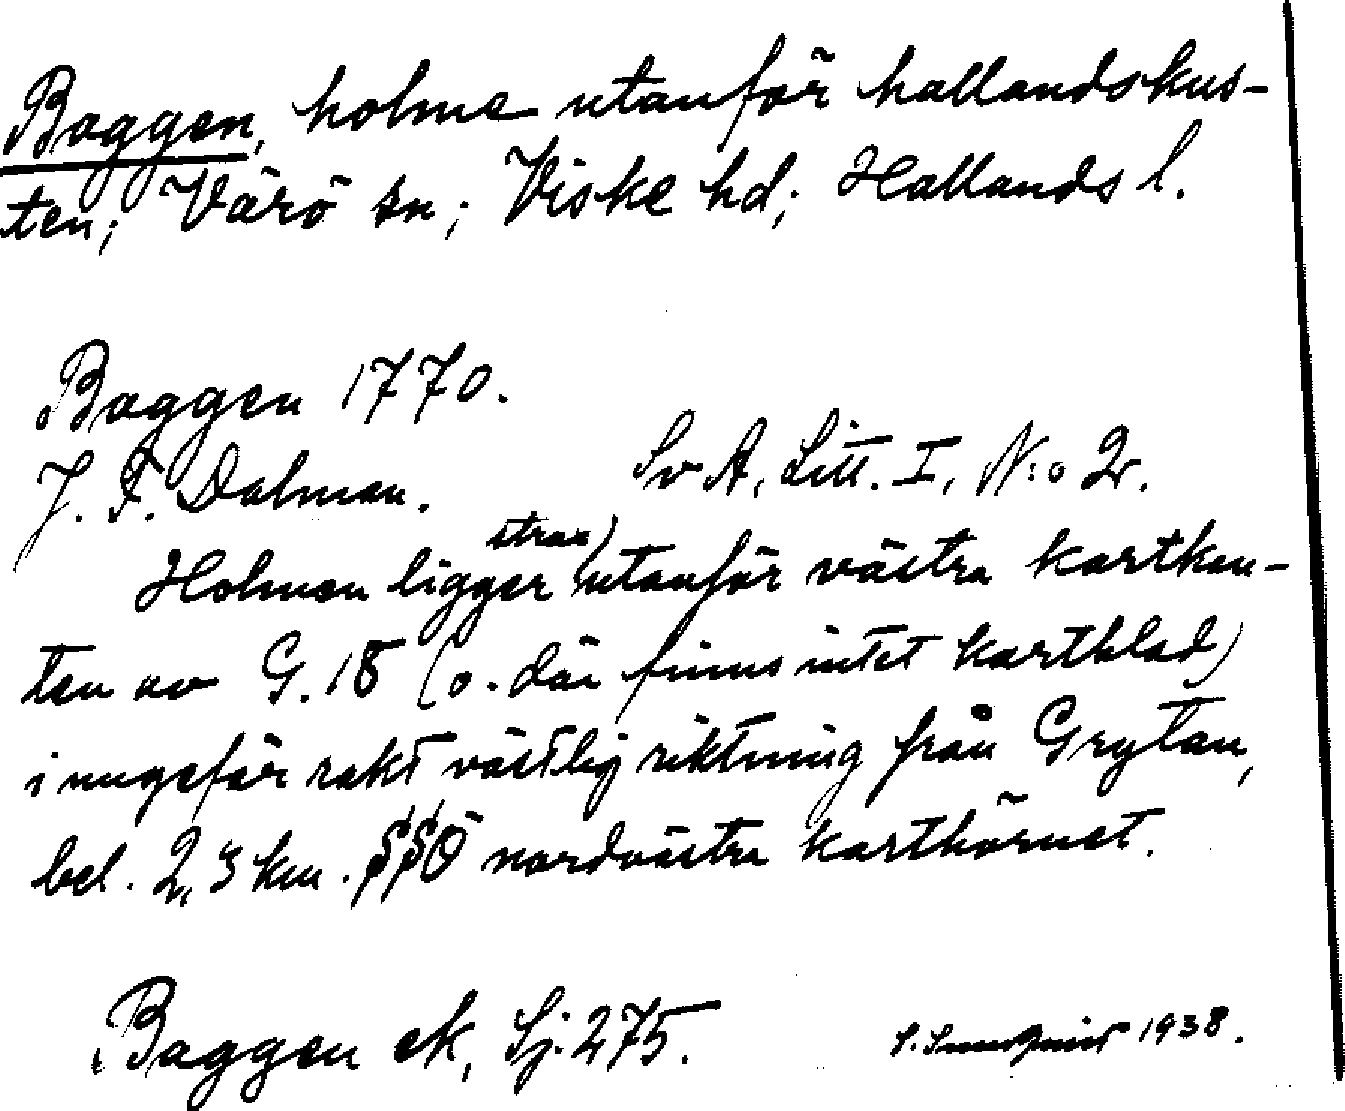 Baggen, holme utanför hallandskus-
ten; Värö sn; Viske hd; Hallands l.
Baggen 1770.
J. F. Dalman. Sv A, Litt. I, N:o 2.
Holmen ligger strax utanför västra kartkan-
ten av G. 18 (o. där finns intet kartblad)
i ungefär rakt västlig riktning från Grytan,
bel. 2,3 km. SSÖ nordvästra karthörnet.
Baggen ek, Sj. 275. 1938.